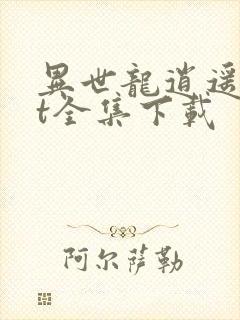 異世龍逍遥
t全集下載
阿尔萨勒